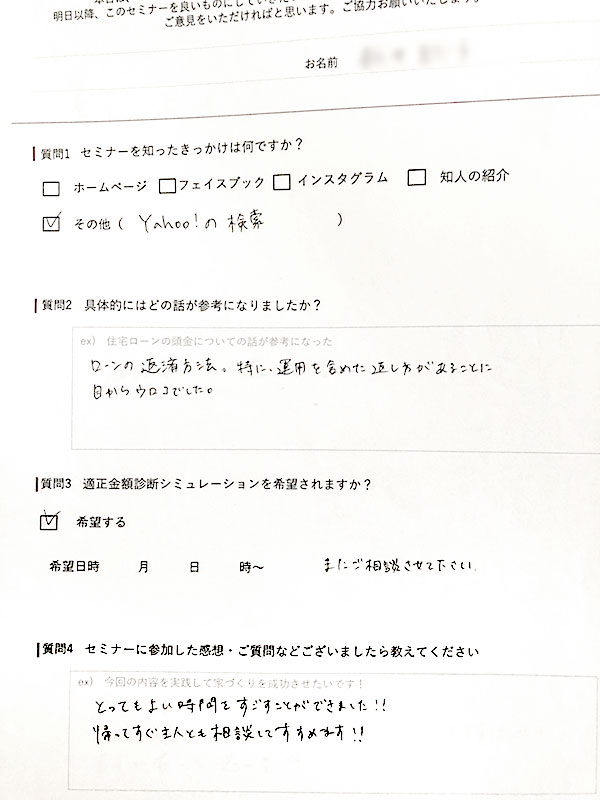 明日以降、このセミナーを良いものにしていきた
ご意見をいただければと思います。ご協力お願いいたします。
お名前
質問1 セミナーを知ったきっかけは何ですか？
ホームページ フェイスブック インスタグラム 知人の紹介
その他（ Yahoo!の検索 ）
質問2 具体的にはどの話が参考になりましたか？
ex) 住宅ローンの頭金についての話が参考になった
ローンの返済方法。特に、運用を含めた返し方があることに
目からウロコでした。
質問3 適正金額診断シミュレーションを希望されますか？
希望する
希望日時 月 日 時～ またご相談させて下さい。
質問4 セミナーに参加した感想・ご質問などございましたら教えてください
ex) 今回の内容を実践して家づくりを成功させたいです！
とってもよい時間をすごすことができました!!
帰ってすぐ主人とも相談してすすめます!!